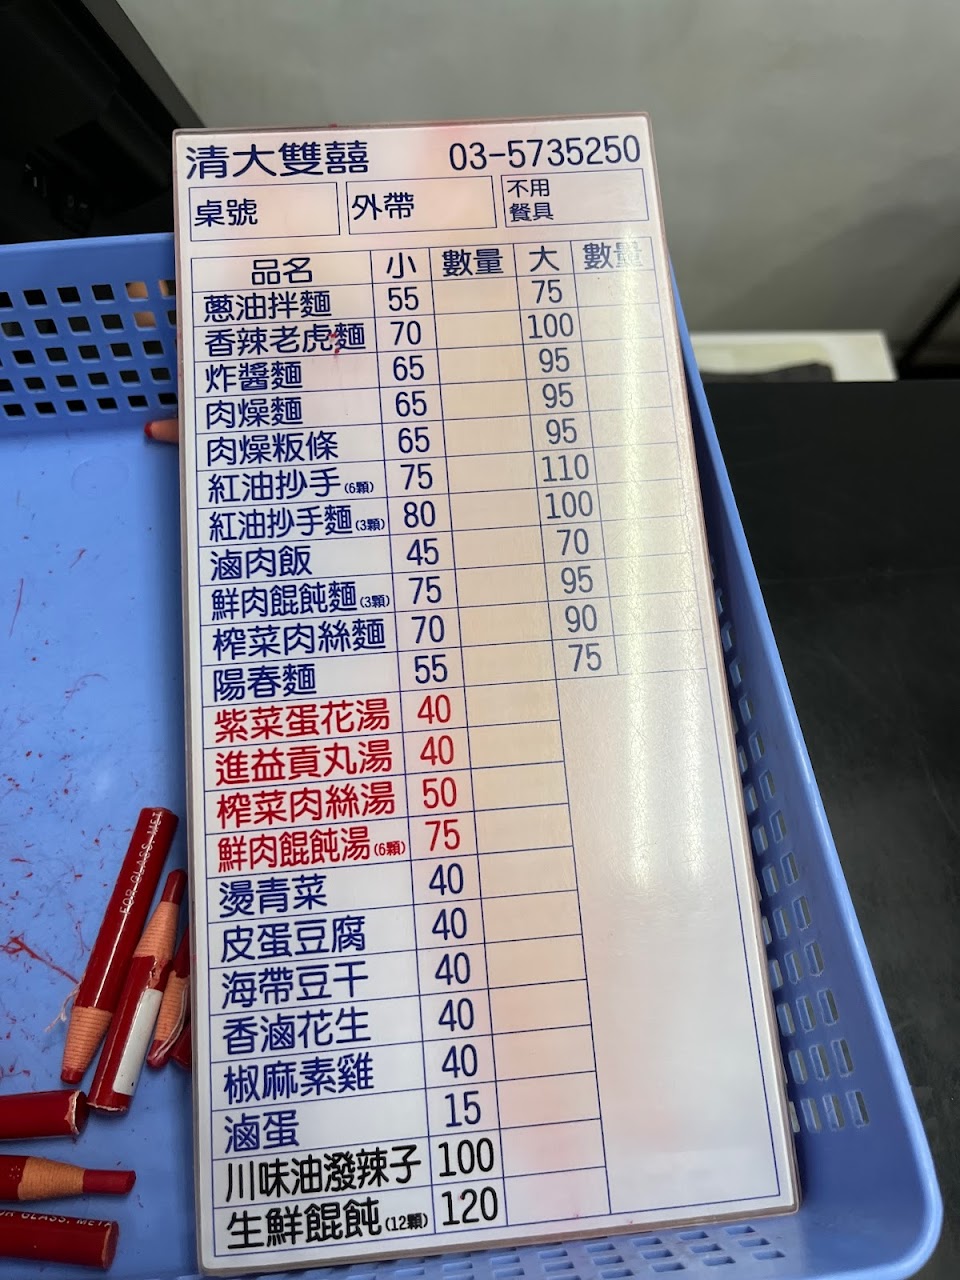 清大雙囍 03-5735250
桌號 外帶 不用
餐具
品名 小 數量 大 數量
蔥油拌麵 55 75
香辣老虎麵 70 100
炸醬麵 65 95
肉燥麵 65 95
肉燥粄條 65 95
紅油抄手(6顆) 75 110
紅油抄手麵(3顆) 80 100
滷肉飯 45 70
鮮肉餛飩麵(3顆) 75 95
榨菜肉絲麵 70 90
陽春麵 55 75
紫菜蛋花湯 40
進益貢丸湯 40
榨菜肉絲湯 50
鮮肉餛飩湯(6顆) 75
燙青菜 40
皮蛋豆腐 40
海帶豆干 40
香滷花生 40
椒麻素雞 40
滷蛋 15
川味油潑辣子 100
生鮮餛飩(12顆) 120
FOR GLASS, MET
FOR GLASS, META